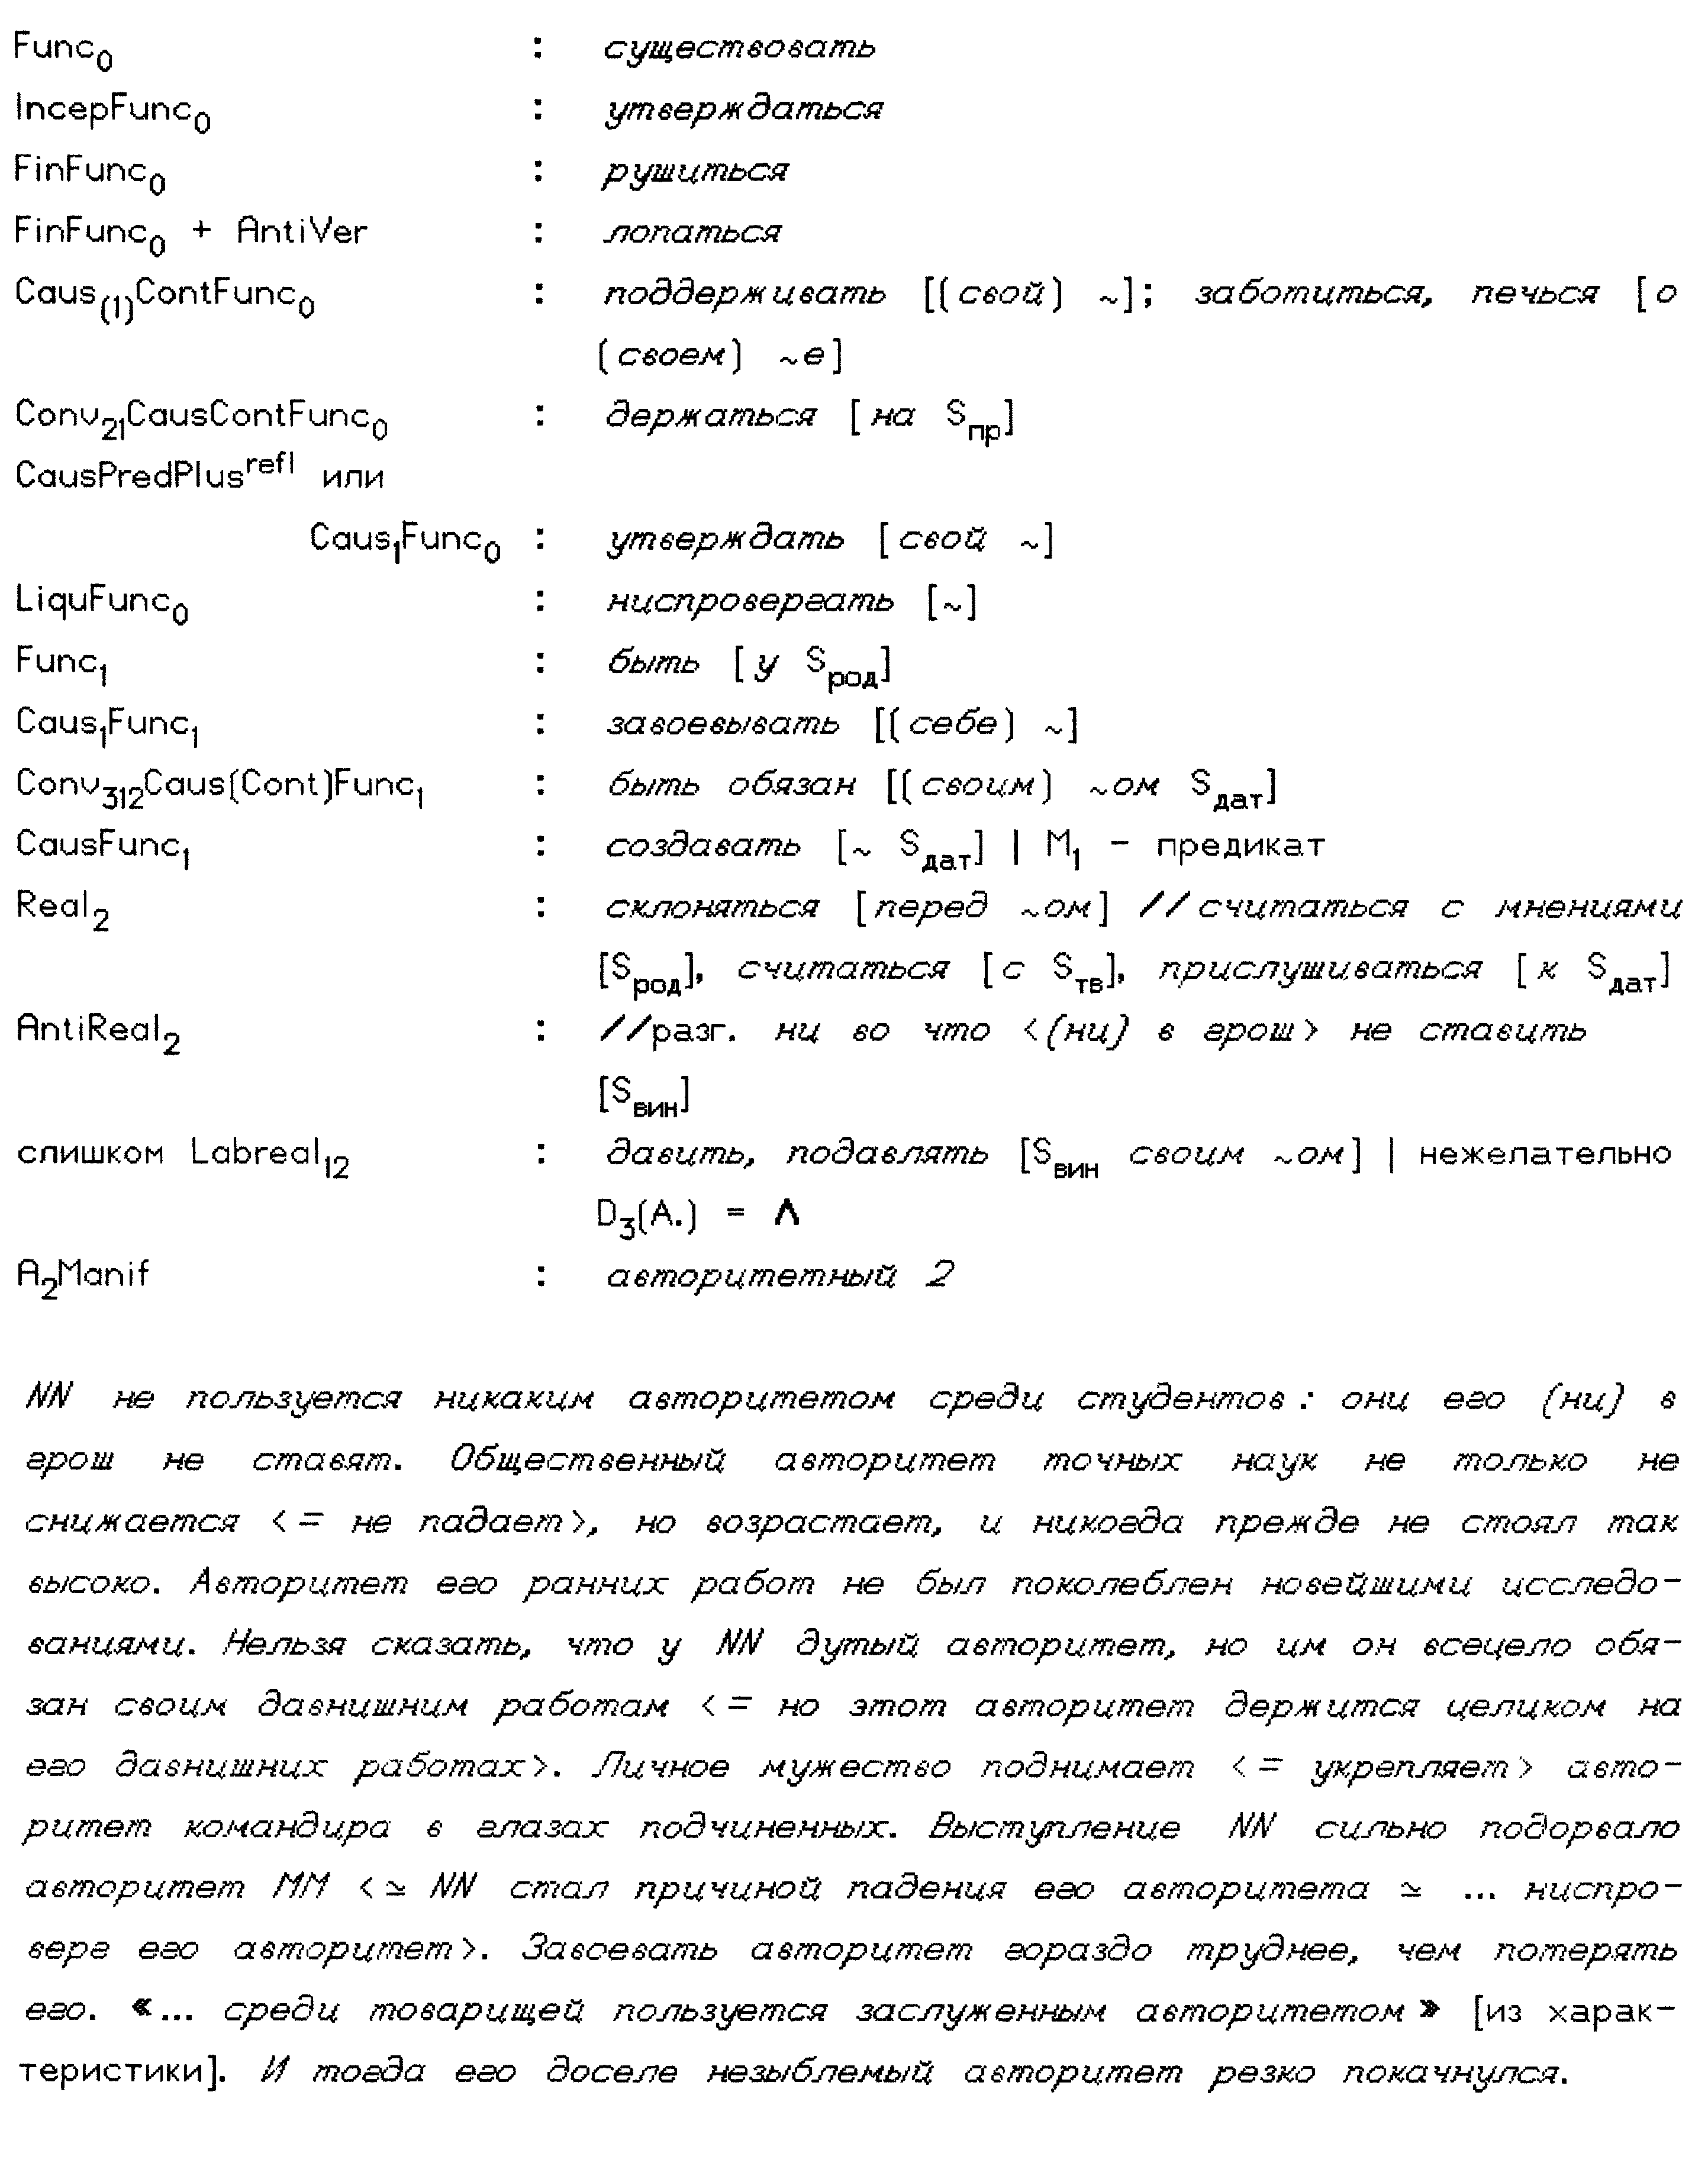 Func₀ : существовать
IncepFunc₀ : утверждаться
FinFunc₀ : рушиться
FinFunc₀ + AntiVer : лопаться
Caus₍₁₎ContFunc₀ : поддерживать [(свой) ~]; заботиться, печься [о
(своем) ~е]
Conv₂₁CausContFunc₀ : держаться [на Sпр]
CausPredPlusʳᵉᶠˡ или
Caus₁Func₀ : утверждать [свой ~]
LiquFunc₀ : ниспровергать [~]
Func₁ : быть [у Sрод]
Caus₁Func₁ : завоевывать [(себе) ~]
Conv₃₁₂Caus(Cont)Func₁ : быть обязан [(своим) ~ом Sдат]
CausFunc₁ : создавать [~ Sдат] | M₁ - предикат
Real₂ : склоняться [перед ~ом] //считаться с мнениями
[Sрод], считаться [с Sтв], прислушиваться [к Sдат]
AntiReal₂ : //разг. ни во что <(ни) в грош> не ставить
[Sвин]
слишком Labreal₁₂ : давить, подавлять [Sвин своим ~ом] | нежелательно
D₃(A.) = Λ
A₂Manif : авторитетный 2
NN не пользуется никаким авторитетом среди студентов: они его (ни) в
грош не ставят. Общественный авторитет точных наук не только не
снижается <= не падает>, но возрастает, и никогда прежде не стоял так
высоко. Авторитет его ранних работ не был поколеблен новейшими исследо-
ваниями. Нельзя сказать, что у NN дутый авторитет, но им он всецело обя-
зан своим давнишним работам <= но этот авторитет держится целиком на
его давнишних работах>. Личное мужество поднимает <= укрепляет> авто-
ритет командира в глазах подчиненных. Выступление NN сильно подорвало
авторитет MM <≃ NN стал причиной падения его авторитета ≃ ... ниспро-
верг его авторитет>. Завоевать авторитет гораздо труднее, чем потерять
его. «... среди товарищей пользуется заслуженным авторитетом» [из харак-
теристики]. И тогда его доселе незыблемый авторитет резко покачнулся.